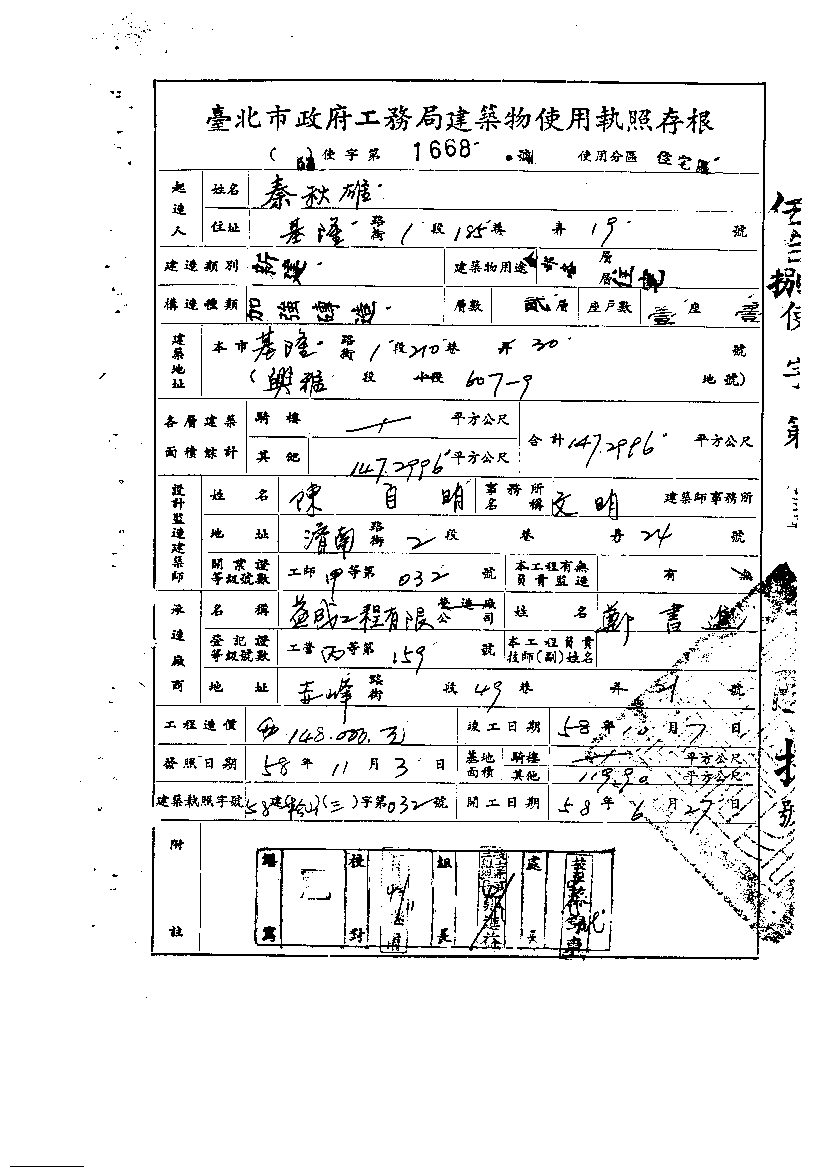 臺北市政府工務局建築物使用執照存根
( ) 使字第 1668 號 使用分區 住宅區
起造人 姓名 秦秋雄
住址 基隆 路街 1 段 185 巷 弄 19 號
建造類別 新建 建築物用途 層 層 住宅
構造種類 加強磚造 層數 貳 層 座戶數 壹 座 壹
建築地址 本市 基隆 路街 1 段 210 巷 弄 30 號
( 興雅 段 小段 607-9 地號)
各層建築面積總計 騎樓 平方公尺 合計 147.2996 平方公尺
其他 147.2996 平方公尺
設計監造建築師 姓名 陳自明 事務所名稱 文明 建築師事務所
地址 濟南 路街 2 段 巷 弄 24 號
開業證等級號數 工師 甲 等第 032 號 本工程有無負責監造 有 無
承造廠商 名稱 益成工程有限 營造廠公司 姓名 鄭書進
登記證等級號數 工營 丙 等第 159 號 本工程負責技師(副)姓名
地址 赤峰 路街 段 49 巷 弄 21 號
工程造價 148.000.元 竣工日期 58 年 10 月 7 日
發照日期 58 年 11 月 3 日 基地面積 騎樓 平方公尺
其他 119.90 平方公尺
建築執照字號 58 建(松山)(三)字第 032 號 開工日期 58 年 6 月 27 日
附註 繕寫 校對 組長 處長
捌使字第
號